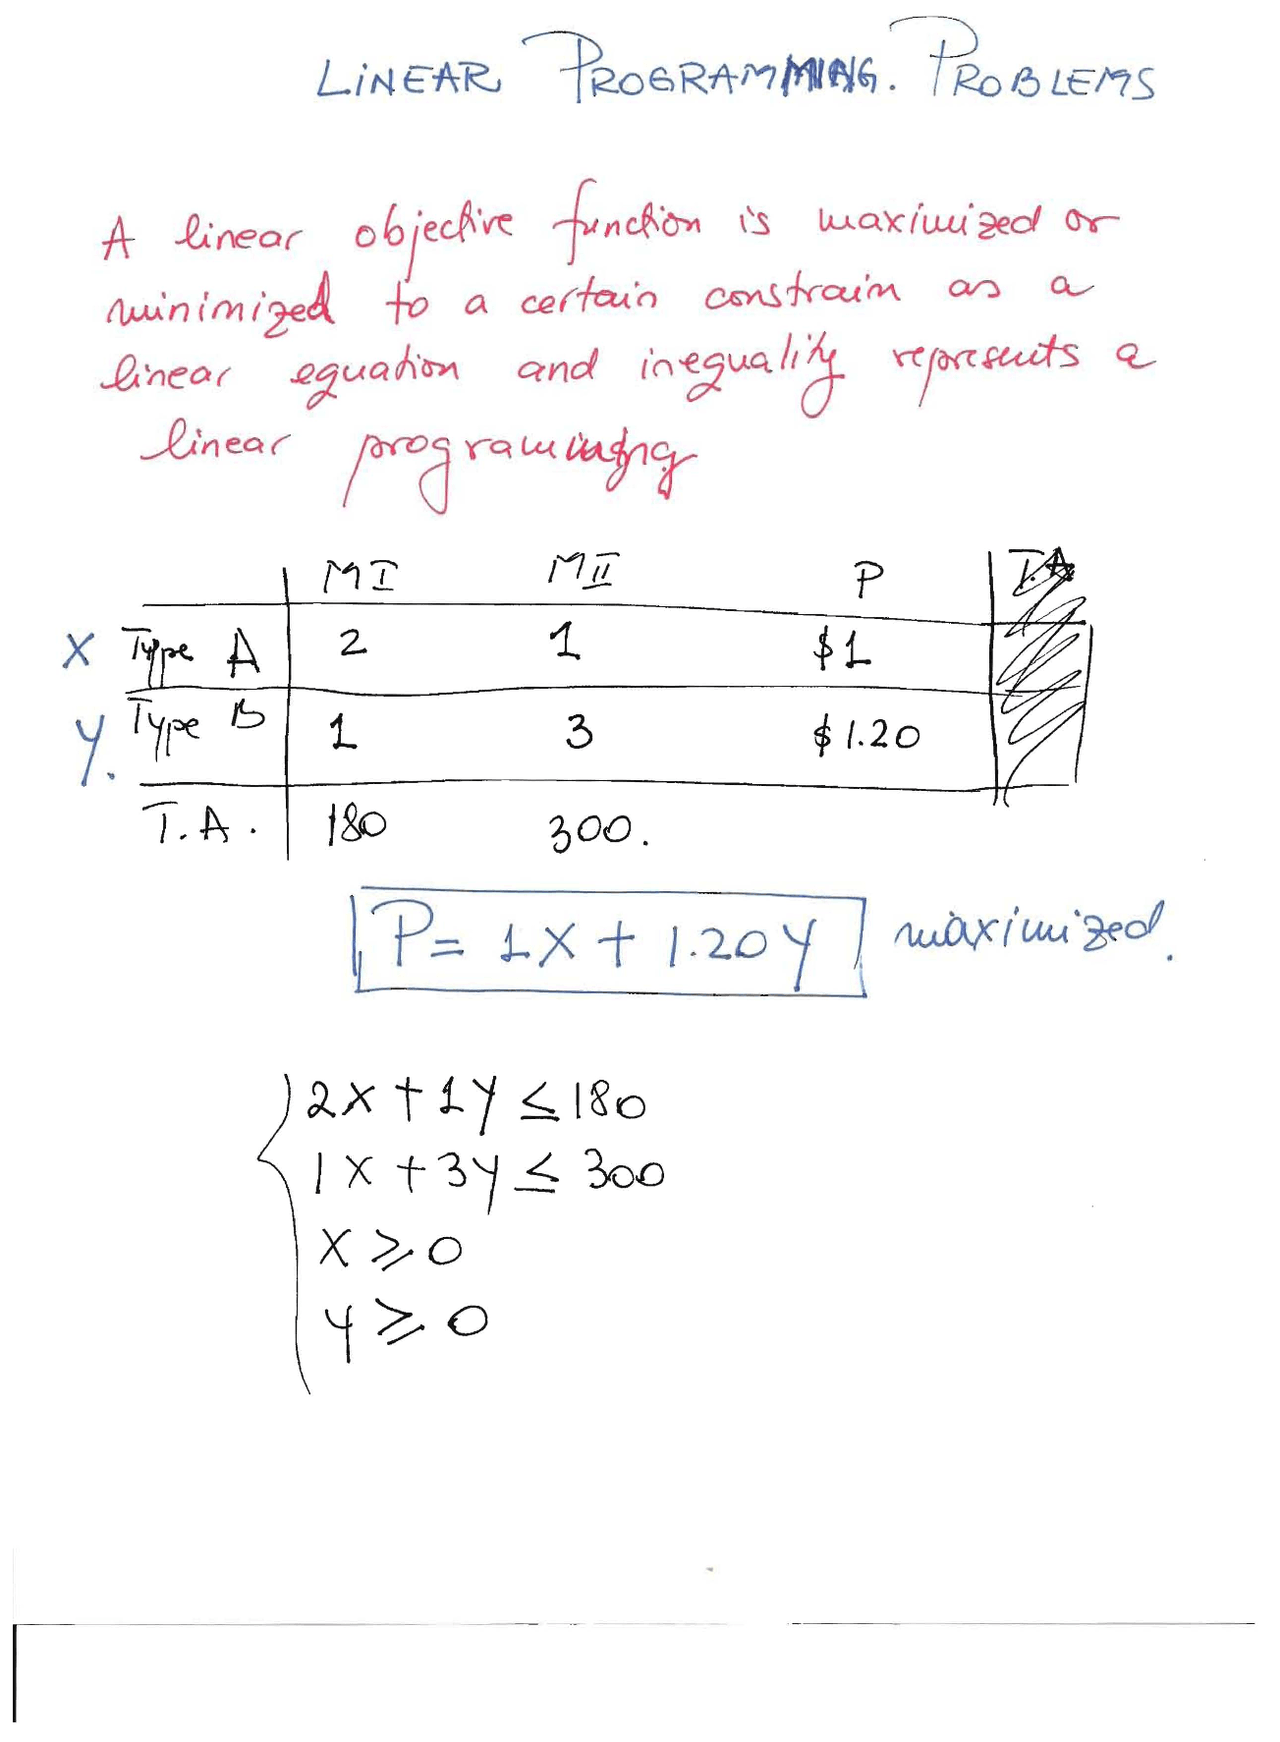 LINEAR PROGRAMMING. PROBLEMS
A linear objective function is maximized or
minimized to a certain constrain as a
linear equation and inequality represents a
linear programing
MI MII P T.A
X Type A 2 1 $1
y. Type B 1 3 $1.20
T.A. 180 300.
P = 1X + 1.20Y maximized.
2x + 1y ≤ 180
1x + 3y ≤ 300
x ≥ 0
y ≥ 0